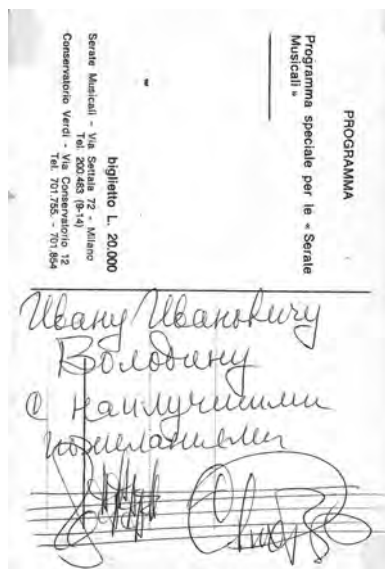 PROGRAMMA
Programma speciale per le « Serate
Musicali »
"
biglietto L. 20.000
Serate Musicali - Via Settala 72 - Milano
Tel. 200.483 (9-14)
Conservatorio Verdi - Via Conservatorio 12
Tel. 701.755. - 701.854
Ивану Ивановичу
Володину
с наилучшими
пожеланиями